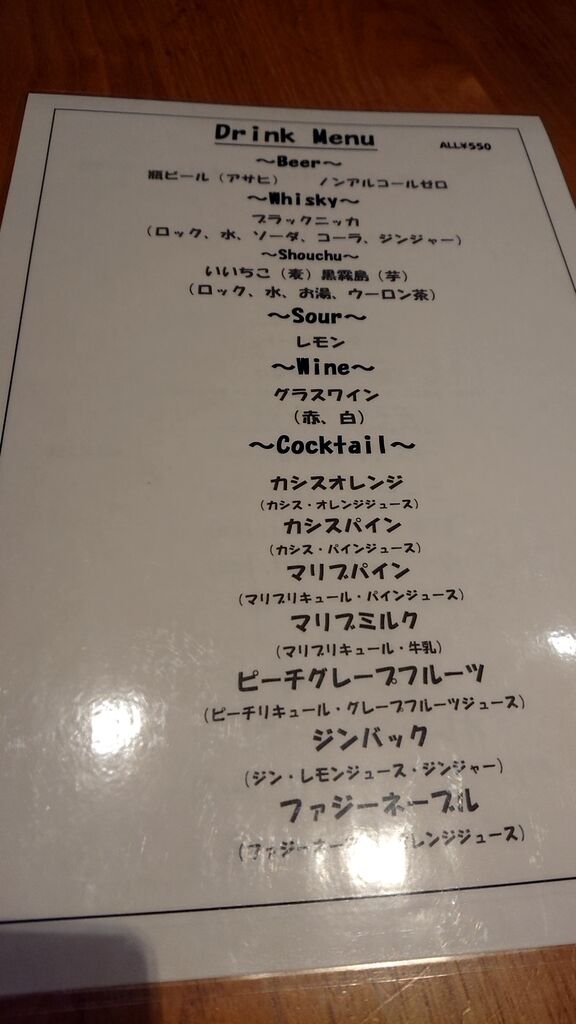 Drink Menu
ALL¥550
～Beer～
瓶ビール（アサヒ）　ノンアルコールゼロ
～Whisky～
ブラックニッカ
（ロック、水、ソーダ、コーラ、ジンジャー）
～Shouchu～
いいちこ（麦）黒霧島（芋）
（ロック、水、お湯、ウーロン茶）
～Sour～
レモン
～Wine～
グラスワイン
（赤、白）
～Cocktail～
カシスオレンジ
（カシス・オレンジジュース）
カシスパイン
（カシス・パインジュース）
マリブパイン
（マリブリキュール・パインジュース）
マリブミルク
（マリブリキュール・牛乳）
ピーチグレープフルーツ
（ピーチリキュール・グレープフルーツジュース）
ジンバック
（ジン・レモンジュース・ジンジャー）
ファジーネーブル
（ファジーネー レンジジュース）